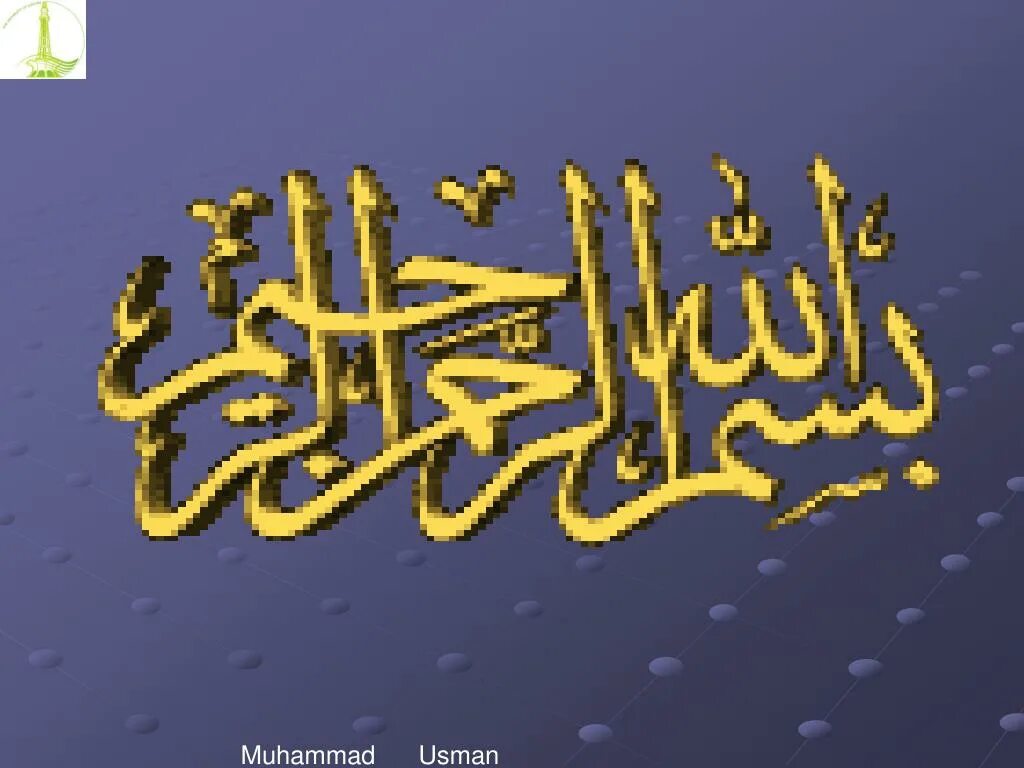 بِسْمِ اللهِ الرَّحْمٰنِ الرَّحِيْمِ
Muhammad Usman